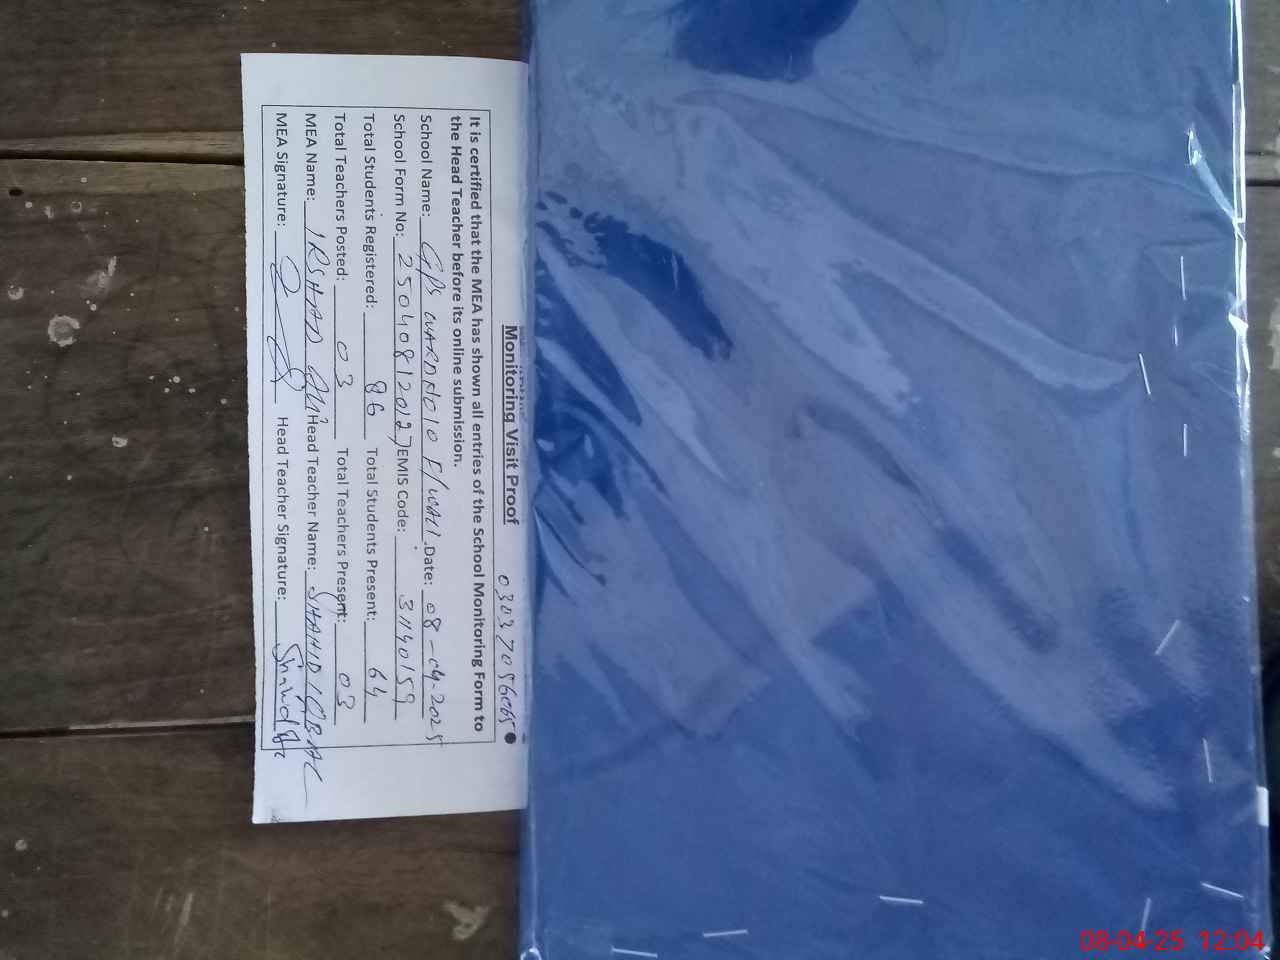 Monitoring Visit Proof 03037056065
It is certified that the MEA has shown all entries of the School Monitoring Form to
the Head Teacher before its online submission.
School Name: GPS WARD NO 10 F/WALI Date: 08-04-2025
School Form No: 250408120127 EMIS Code: 31140159
Total Students Registered: 86 Total Students Present: 64
Total Teachers Posted: 03 Total Teachers Present: 03
MEA Name: IRSHAD ALI Head Teacher Name: SHAHID IQBAL
MEA Signature: Head Teacher Signature: Shahid
08-04-25 12:04